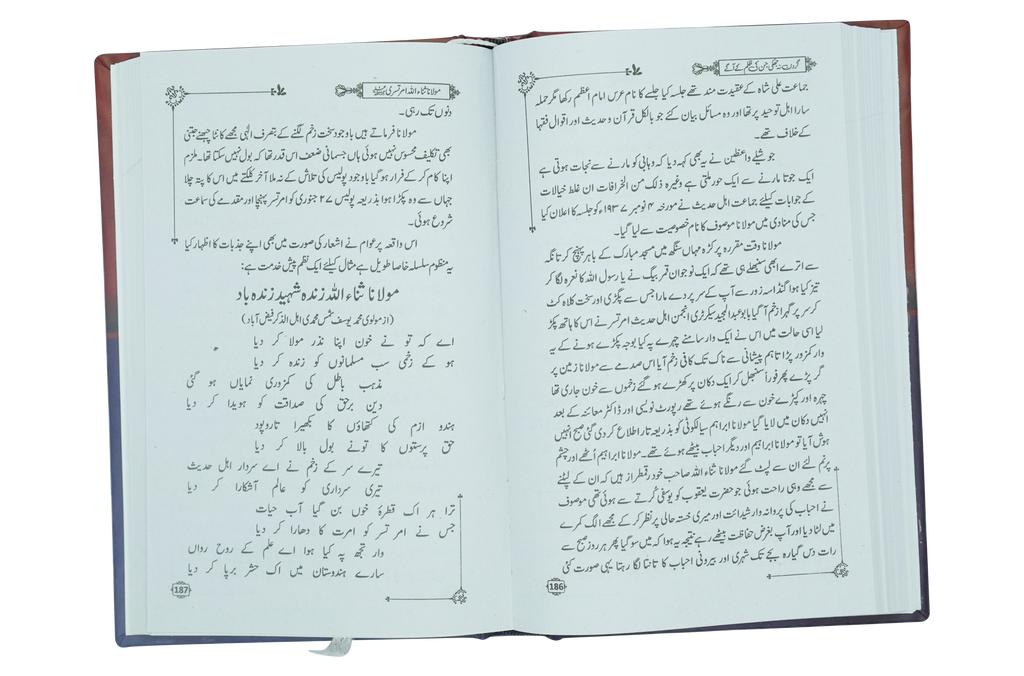 گردن نہ جھکی جن کی ظلم کے آگے
جماعت علی شاہ کے عقیدت مند تھے جلسہ کیا جلسے کا نام عرس امام اعظم رکھا مگر حملہ
سارا اہل توحید پر تھا اور وہ مسائل بیان کئے جو بالکل قرآن و حدیث اور اقوال فقہا
کے خلاف تھے۔
جوشیلے واعظین نے یہ بھی کہہ دیا کہ وہابی کو مارنے سے نجات ہوتی ہے
ایک جوتا مارنے سے ایک حور ملتی ہے وغیرہ ذلک من الخرافات ان غلط خیالات
کے جوابات کیلئے جماعت اہل حدیث نے مورخہ ۴ نومبر ۱۹۳۷ء کو جلسہ کا اعلان کیا
جس کی منادی میں مولانا موصوف کا نام خصوصیت سے لیا گیا۔
مولانا وقت مقررہ پر کڑہ مہاں سنگھ میں مسجد مبارک کے باہر پہنچ کر تانگہ
سے اترے ابھی سنبھلے ہی تھے کہ ایک نوجوان قمر بیگ نے یا رسول اللہ کا نعرہ لگا کر
تیز کیا ہوا گنڈاسہ زور سے آپ کے سر پر دے مارا جس سے پگڑی اور سخت کلاہ کٹ
کر سر پر گہرا زخم آ گیا بابو عبدالمجید سیکرٹری انجمن اہل حدیث امرتسر نے اس کا ہاتھ پکڑ
لیا اسی حالت میں اس نے ایک وار سامنے چہرے پہ کیا بوجہ پکڑے ہونے کے یہ
وار کمزور پڑا تاہم پیشانی سے ناک تک کافی زخم آیا اس صدمے سے مولانا زمین پر
گر پڑے پھر فوراً سنبھل کر ایک دکان پر کھڑے ہو گئے زخموں سے خون جاری تھا
چہرہ اور کپڑے خون سے رنگے ہوئے تھے رپورٹ نویسی اور ڈاکٹر معائنہ کے بعد
انہیں دکان میں لایا گیا مولانا ابراہیم سیالکوٹی کو بذریعہ تار اطلاع کر دی گئی صبح انہیں
ہوش آیا تو مولانا ابراہیم اور دیگر احباب بیٹھے ہوئے تھے۔ مولانا ابراہیم اُٹھے اور چشم
پرنم لئے ان سے لپٹ گئے مولانا ثناء اللہ صاحب خود رقمطراز ہیں کہ ان کے لپٹنے
سے مجھے وہی راحت ہوئی جو حضرت یعقوب کو یوسفی کُرتے سے ہوئی تھی موصوف
نے احباب کی پروانہ وار شیدائت اور میری خستہ حالی پر نظر کر کے مجھے الگ کمرے
میں لٹا دیا اور آپ بغرض حفاظت بیٹھے رہے نتیجہ یہ ہوا کہ میں سو گیا پھر ہر روز صبح سے
رات دس گیارہ بجے تک شہری اور بیرونی احباب کا تانتا لگا رہتا یہی صورت کئی
186
مولانا ثناء اللہ امرتسری
دنوں تک رہی۔
مولانا فرماتے ہیں باوجود سخت زخم لگنے کے بتصرف الٰہی مجھے کانٹا چبھنے جتنی
بھی تکلیف محسوس نہیں ہوئی ہاں جسمانی ضعف اس قدر تھا کہ بول نہیں سکتا تھا۔ ملزم
اپنا کام کر کے فرار ہو گیا باوجود پولیس کی تلاش کے نہ ملا آخر کلکتے میں اس کا پتہ چلا
جہاں سے وہ پکڑا ہوا بذریعہ پولیس ۲۷ جنوری کو امرتسر پہنچا اور مقدمے کی سماعت
شروع ہوئی۔
اس واقعہ پر عوام نے اشعار کی صورت میں بھی اپنے جذبات کا اظہار کیا
یہ منظوم سلسلہ خاصا طویل ہے مثال کیلئے ایک نظم پیش خدمت ہے:
مولانا ثناء اللہ زندہ شہید زندہ باد
(از مولوی محمد یوسف شمس محمدی اہل الذکر فیض آباد)
اے کہ تو نے خون اپنا نذر مولا کر دیا
ہو کے زخمی سب مسلمانوں کو زندہ کر دیا
مذہب باطل کی کمزوری نمایاں ہو گئی
دین برحق کی صداقت کو ہویدا کر دیا
ہندو ازم کی کتھاؤں کا بکھیرا تاروپود
حق پرستوں کا تونے بول بالا کر دیا
تیرے سر کے زخم نے اے سردار اہل حدیث
تیری سرداری کو عالم آشکارا کر دیا
ترا ہر اک قطرۂ خوں بن گیا آب حیات
جس نے امر تسر کو امرت کا دھارا کر دیا
وار تجھ پہ کیا ہوا اے علم کے روح رواں
سارے ہندوستان میں اک حشر برپا کر دیا
187